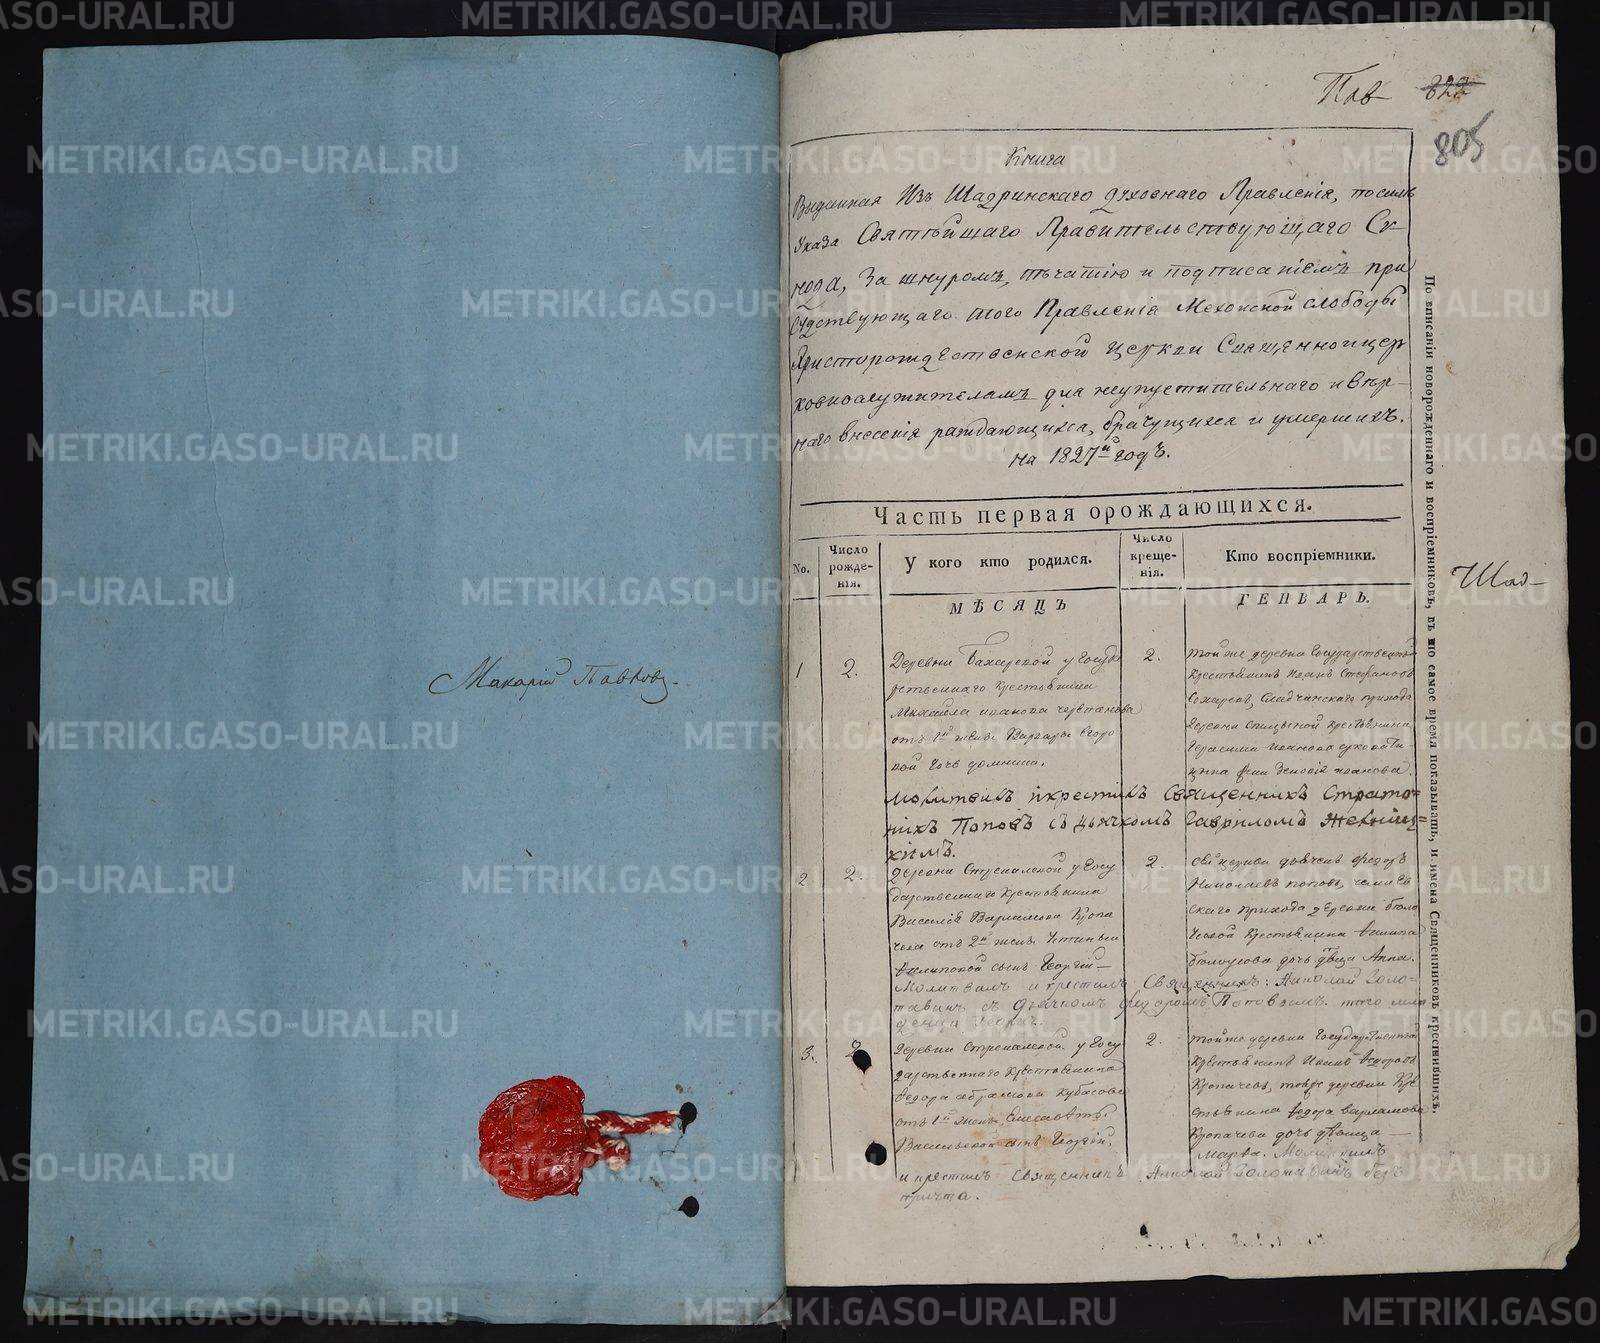 Макарій Павловъ.
Пав 822
805
Книга
Выданная Изъ Шадринскаго духовнаго Правленія, по силѣ
Указа Святѣйшаго Правительствующаго Си-
нода, За шнуромъ, печатію и подписаніемъ при
судствующаго того Правленія Мехонской слободы
Христорождественской церкви Священноицер
ковнослужителямъ для неупустительнаго и вѣр-
наго внесенія раждающихся, брачущихся и умершихъ.
на 1827й годъ.
Часть первая орождающихся.
No.
Число рожде-нія.
У кого кто родился.
Число креще-нія.
Кто воспріемники.
МѢСЯЦЪ
ГЕНВАРЬ.
1
2.
Деревни у Госуда
рственнаго Крестьянина
Михаила иванова
отъ 1й жены Варвары Егоро
вой дочь домника.
2.
той же деревни Государственной
Крестьянинъ Иванъ Стефановъ
прихода
деревни Крестьянина
Герасима иванова
иванова.
молитвилъ икрестилъ Священникъ Страто-
никъ Поповъ съ дьячкомъ Гавриломъ
кимъ.
2
2.
деревни у Госу
дарственнаго Крестьянина
Василія Варламова Кропа
чева отъ 2й жены Устиньи
Филиповой сынъ Георгій
2.
Николаевъ поповъ,
скаго прихода деревни
Крестьянина Филипа
дочь двица Анна.
Молитвилъ и крестилъ Священникъ: Николай Золо-
тавинъ съ дьячкомъ федоромъ Поповымъ. того мла
денца
3.
2
Деревни у Госу
дарственнаго Крестьянина
Федора абрамова Кубасова
отъ 1й жены Елисаветы
Васильевой сынъ Георгій,
2.
той же деревни Государственной
Крестьянинъ Иванъ Федоровъ
Кропачевъ, тойже деревни Кре
стьянина федора варламова
Кропачева дочь двица
Марва. Молитвилъ
и крестилъ Священникъ Николай Золотавинъ безъ
причта.
По вписаніи новорожденнаго и воспріемниковъ, въ то самое время показывать, и имена Священниковъ крестившихъ.
Шад
METRIKI.GASO-URAL.RU